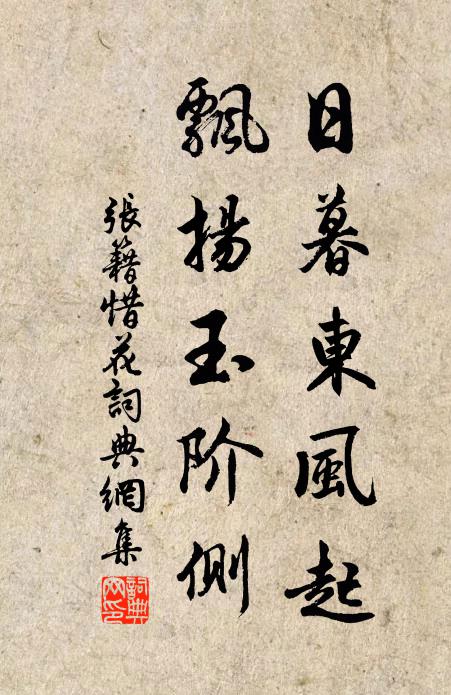 日暮東風起
飄揚玉阶側
張籍惜花詞典網集
詞典網印